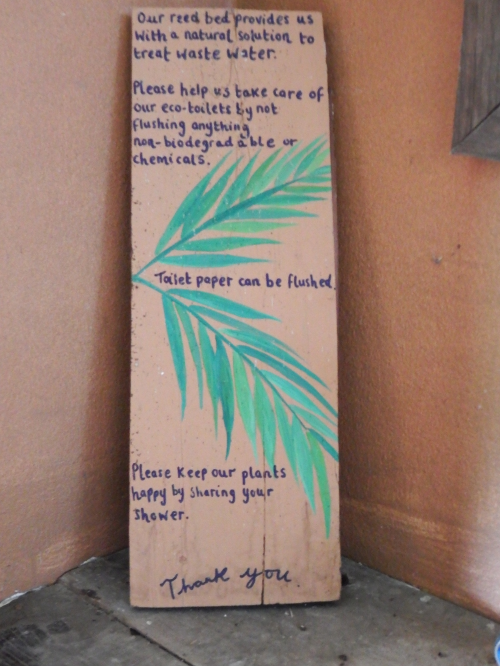 Our reed bed provides us
with a natural solution to
treat waste water.
Please help us take care of
our eco-toilets by not
flushing anything
non-biodegradable or
chemicals.
Toilet paper can be flushed.
Please keep our plants
happy by sharing your
shower.
Thank you.